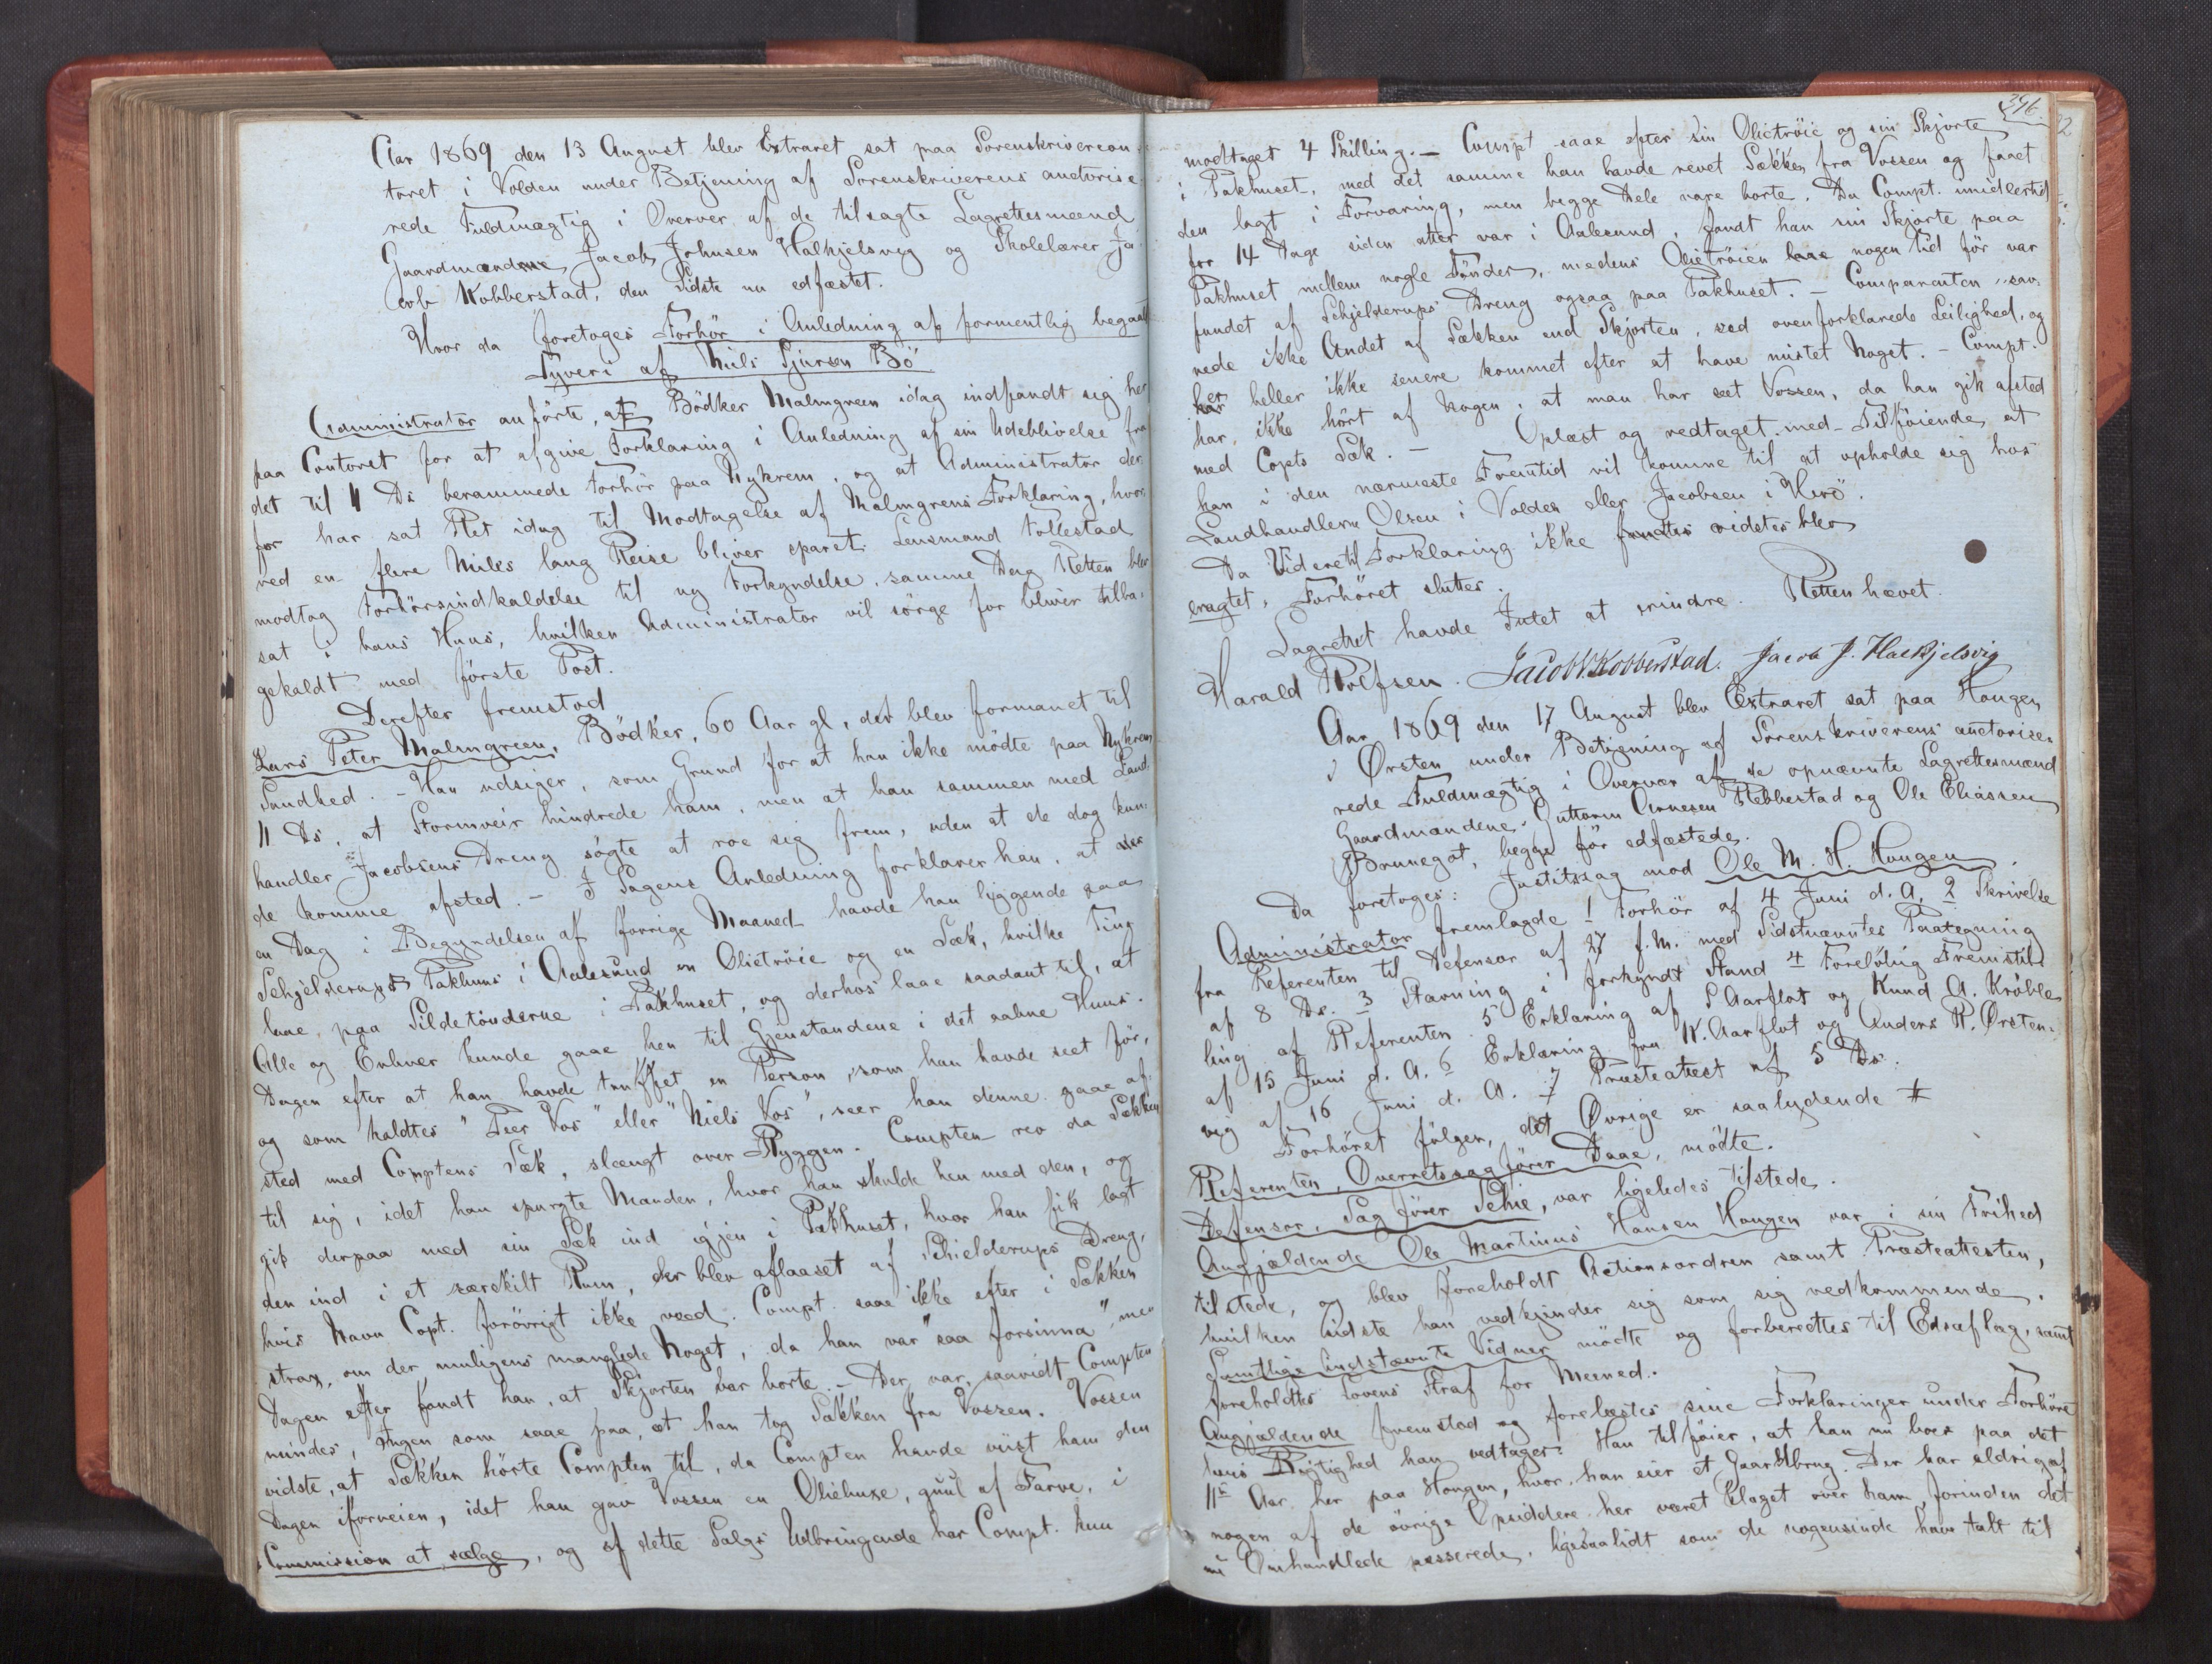 Aar 1869 den 13 August blev Extraret sat paa Sorenskrivercon-
toret i Volden under Betjening af Sorenskriverens auctorise-
rede Fuldmægtig i Overvær af de tilsagte Lagrettesmænd
Gaardmændene Jacob Johnsen Halkjelsvig og Skolelærer Ja-
cob Kobberstad, den Sidste nu edfæstet.
Hvor da foretoges Forhör i Anledning af formentlig begaaet
Tyveri af Niels Sjursen Bö
Administrator anförte, at Bödker Malmgreen idag indfandt sig her
paa Contoret for at afgive Forklaring i Anledning af sin Udeblivelse fra
det til 11 Ds berammede Forhör paa Nykrem, og at Administrator der-
for har sat Ret idag til Modtagelse af Malmgrens Forklaring, hvor-
ved en flere Miles lang Reise bliver sparet. Lensmand Follestad
modtog Forhörsindkaldelse til ny Forkyndelse, samme Dag Retten blev
sat i hans Huus, hvilken Administrator vil sörge for bliver tilba-
gekaldt med förste Post.
Derefter fremstod
Lars Peter Malmgreen, Bödker, 60 Aar gl, der blev formanet til
Sandhed. - Han udsiger, som Grund for at han ikke mödte paa Nykrem
11 Ds, at Stormveir hindrede ham, men at han sammen med Land-
handler Jacobsens Dreng sögte at roe sig frem, uden at de dog kun-
de komme afsted. - I Sagens Anledning forklarer han, at der
en Dag i Begyndelsen af forrige Maaned havde han liggende paa
Schjelderups Pakhuus i Aalesund en Olietröie og en Sæk, hvilke Ting
laae paa Sildetönderne i Pakhuset, og derhos laae saadant til, at
Alle og Enhver kunde gaae hen til Gjenstandene i det aabne Huus.
Dagen efter at han havde truffet en Person, som han havde seet för,
og som kaldtes "Peer Vos" eller "Niels Vos", seer han denne gaae af-
sted med Comptens Sæk, slængt over Ryggen. Compten rev da Sækken
til sig, idet han spurgte Manden, hvor han skulde hen med den, og
gik derpaa med sin Sæk ind igjen i Pakhuset, hvor han fik lagt
den ind i et særskilt Rum, der blev aflaaset af Schielderups Dreng,
hvis Navn Copt. forövrigt ikke veed. Compt. saae ikke efter i Sækken
strax, om der muligens manglede Noget, da han var "saa forsinna", men
Dagen efter fandt han, at Skjorten var borte. - Der var, saavidt Compten
mindes, Ingen som saae paa, at han tog Sækken fra Vossen. Vossen
vidste, at Sækken hörte Compten til, da Compten havde viist ham den
Dagen iforveien, idet han gav Vossen en Oliebuxe, guul af Farve, i
Commission at sælge, og af dette Salgs Udbringende har Compt. kun
396.
modtaget 4 Skilling. - Compt saae efter sin Olietröie og sin Skjorte
i Pakhuset, med det samme han havde revet Sækken fra Vossen og faaet
den lagt i Forvaring, men begge Dele vare borte. Da Compt. imidlertid
for 14 Dage siden atter var i Aalesund, fandt han sin Skjorte paa
Pakhuset mellem nogle Tönder, medens Olietröien laae nogen tid för var
fundet af Schjelderups Dreng ogsaa paa Pakhuset. - Comparenten sav-
nede ikke Andet af Sækken end Skjorten, ved ovenforklarede Leilighed, og
er heller ikke senere kommet efter at have mistet Noget. - Compt.
har ikke hört af Nogen, at man har seet Vossen, da han gik afsted
med Copts Sæk. - Oplæst og vedtaget med Tilföiende, at
han i den nærmeste Fremtid vil komme til at opholde sig hos
Landhandlerne Olsen i Volden eller Jacobsen i Herö.
Da Videre til Forklaring ikke fandtes vidstes blev
eragtet, Forhöret sluttes.
Lagrettet havde Intet at erindre. Retten hævet.
Harald Rolfsen. Jacob V. Kobberstad. Jacob J. Halkjelsvig
Aar 1869 den 17 August blev Extraret sat paa Hougen
i Ørsten under Betjening af Sorenskriverens auctorise-
rede Fuldmægtig i Overvær af de opnævnte Lagrettesmænd
Gaardmændene Guttorm Arnesen Rebbestad og Ole Eliassen
Brunegot, begge för edfæstede.
Da foretoges: Justitssag mod Ole M. H. Hougen.
Administrator fremlagde 1 Forhör af 4 Juni d. A. 2 Skrivelse
fra Referenten til Defensor af 27 f.M. med Sidstnævntes Paategning
af 8 Ds. 3 Stævning i forkyndt Stand 4 Forelöbig Fremstil-
ling af Referenten 5 Erklæring af S Aarflot og Knud A. Kröble
af 15 Juni d. A. 6 Erklæring fra K. Aarflot og Anders R. Ørsten-
vig af 16 Juni d. A. 7 Præsteattest af 5 Ds.
Forhöret fölger, det Øvrige er saalydende #
Referenten, Overretssagförer Daae, mödte.
Defensor, Sagförer Schie, var ligeledes tilstede.
Angjældende Ole Martinus Hansen Hougen var i sin Frihed
tilstede, og blev foreholdt Actionsordren samt Præsteattesten,
hvilken sidste han vedkjender sig som sig vedkommende.
Samtlige indstævnte Vidner mödte og forberettes til Edsaflæg, samt
foreholdtes Lovens Straf for Meened.
Angjældende fremstod og forelæstes sine Forklaringer under Forhöret
hvis Rigtighed han vedtager. Han tilföier, at han nu boer paa det
11te Aar her paa Hougen, hvor han eier et Gaardbrug. Der har aldrig af
nogen af de övrige Opsiddere her været klaget over ham, forinden det
nu Omhandlede passerede, ligesaalidt som de nogensinde have talt til